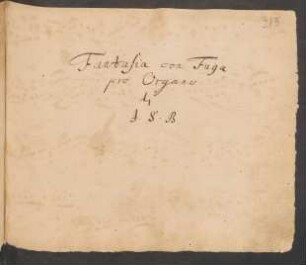 Fantasia con Fuga
pro Organo
di
J. S. B